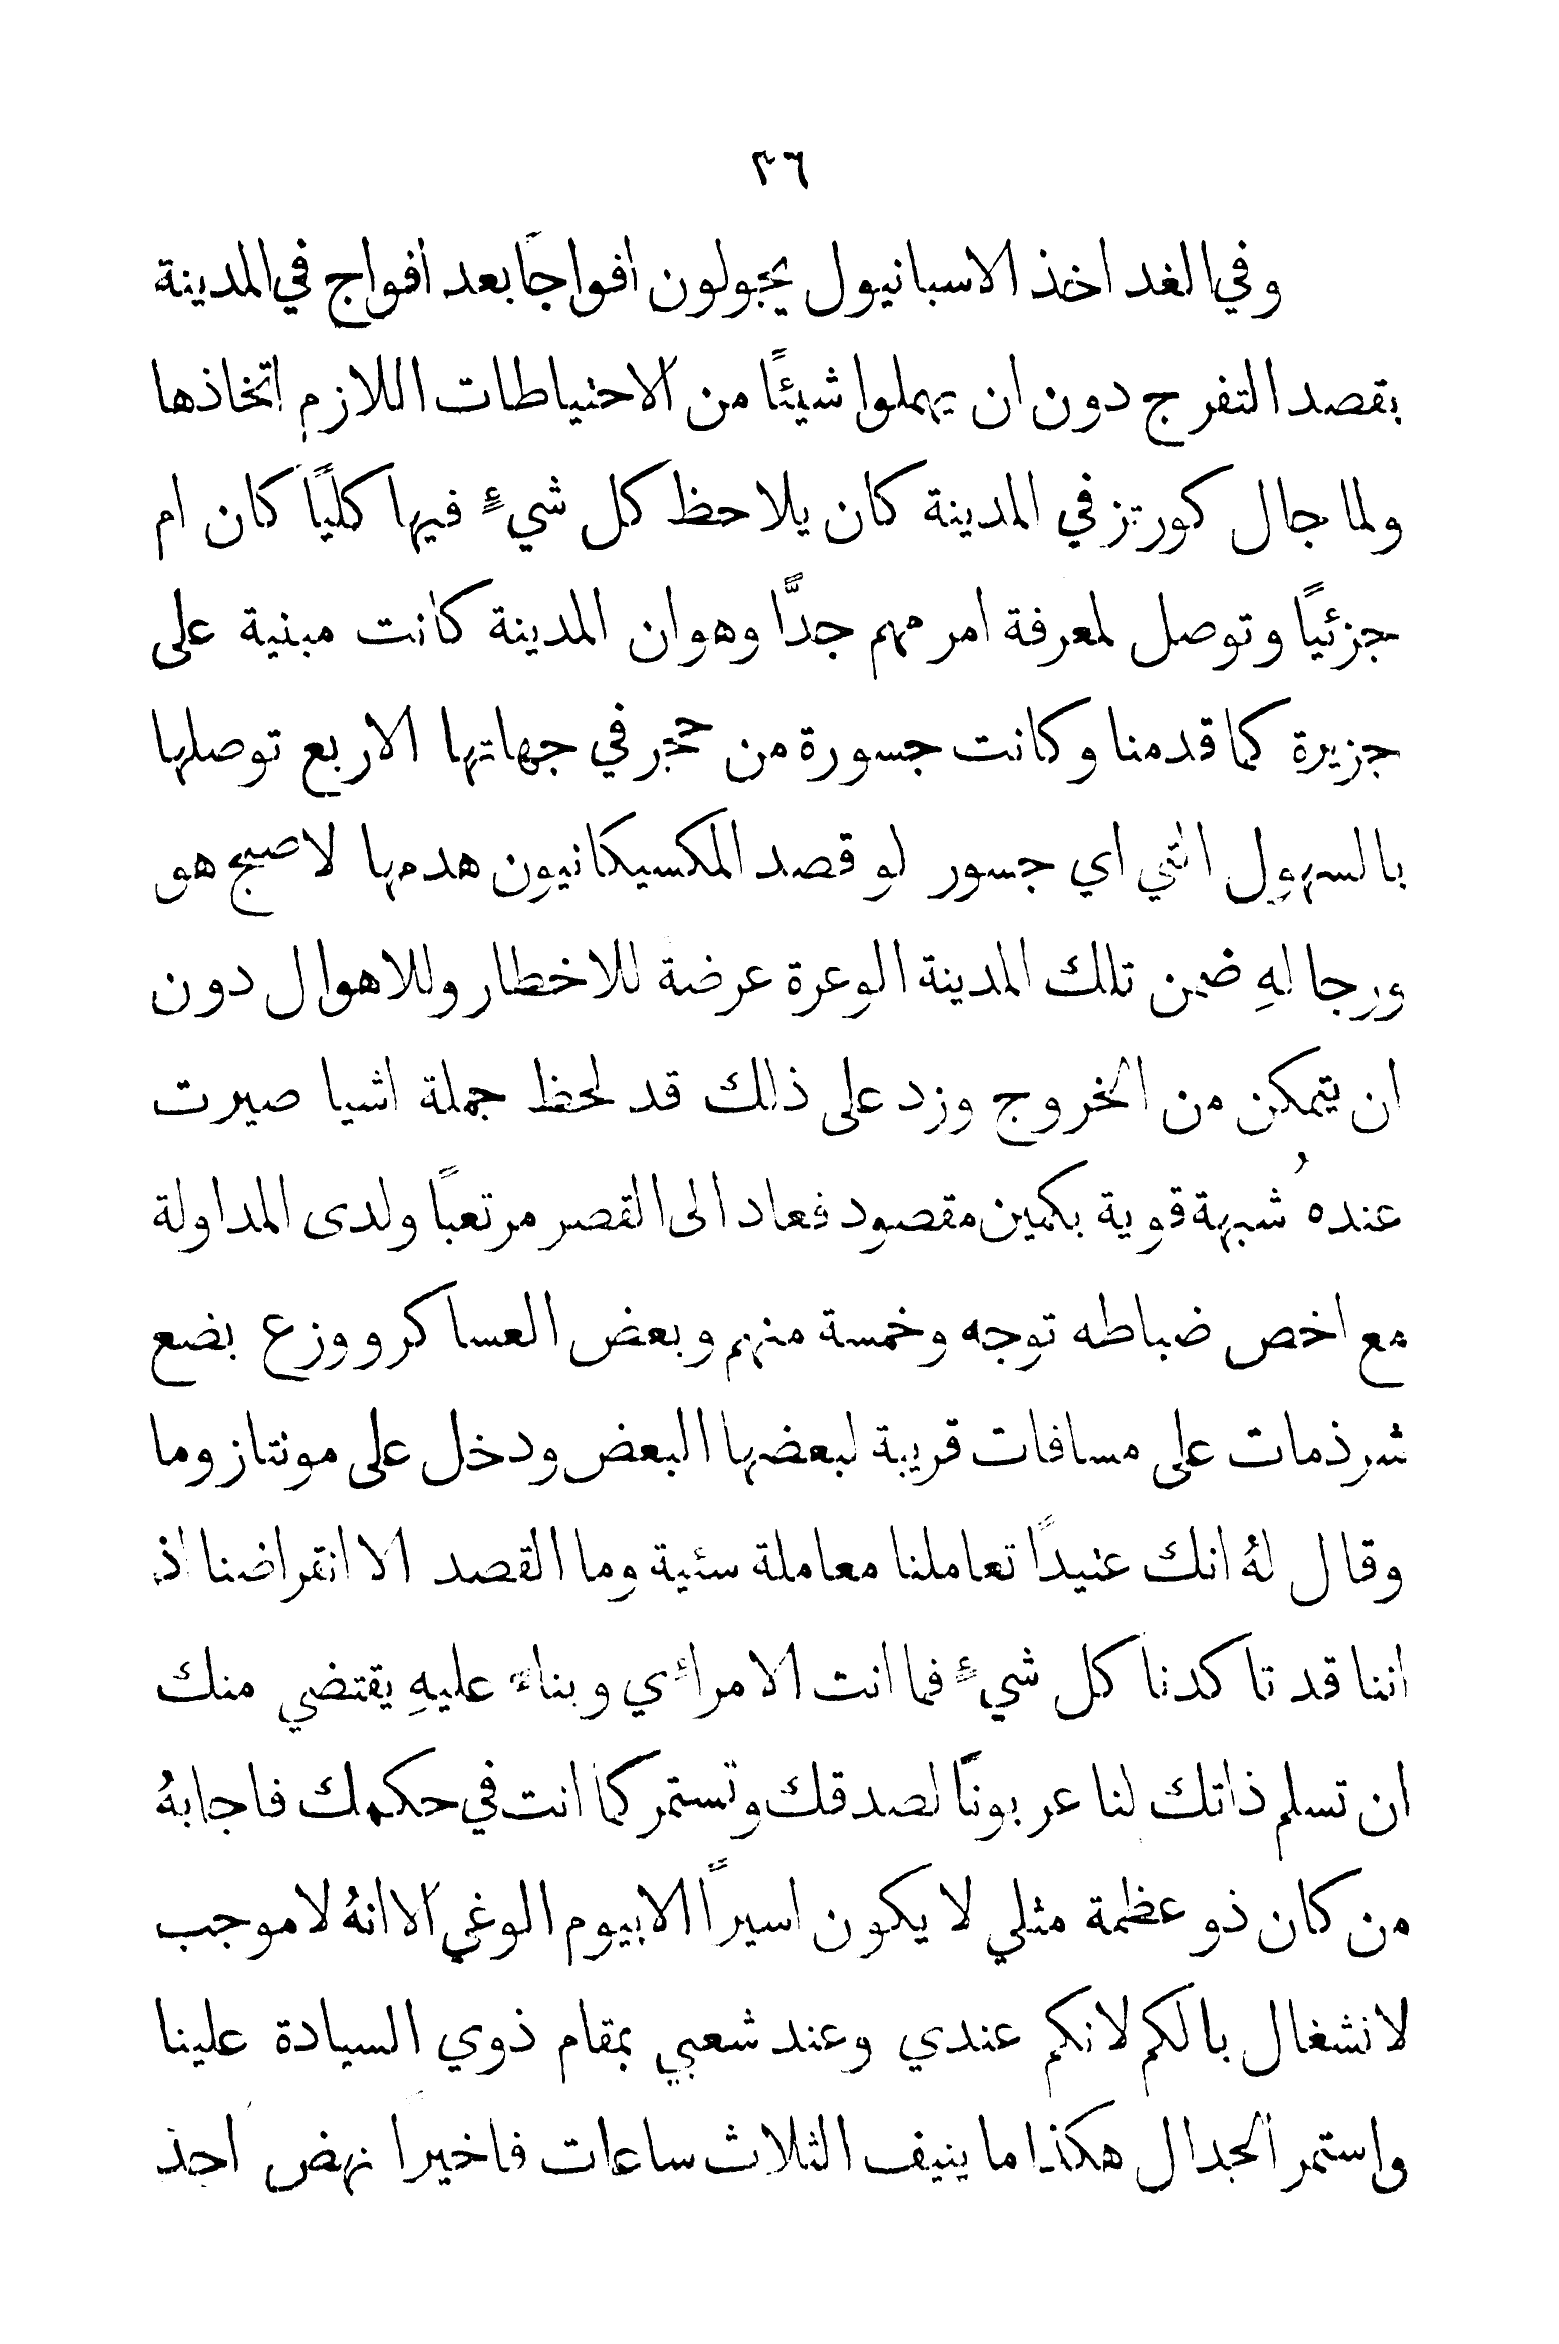 ٣٦
وفي الغد اخذ الاسبانيول يجولون افواجًا بعد افواج في المدينة
بقصد التفرج دون ان يهملوا شيئًا من الاحتياطات اللازم اتخاذها
ولما جال كورتز في المدينة كان يلاحظ كل شيءٍ فيها كليًا كان ام
جزئيًا وتوصل لمعرفة امر مهم جدًّا وهو ان المدينة كانت مبنية على
جزيرة كما قدمنا وكانت جسورة من حجر في جهاتها الاربع توصلها
بالسهول التي اي جسور لو قصد المكسيكانيون هدمها لاصبح هو
ورجالهِ ضمن تلك المدينة الوعرة عرضة للاخطار وللاهوال دون
ان يتمكن من الخروج وزد على ذلك قد لحظ جملة اشيا صيرت
عندهُ شبهة قوية بكمين مقصود فعاد الى القصر مرتعبًا ولدى المداولة
مع اخص ضباطه توجه وخمسة منهم وبعض العساكر ووزع بضع
شرذمات على مسافات قريبة لبعضها البعض ودخل على مونتازوما
وقال لهُ انك عنيدًا تعاملنا معاملة سئية وما القصد الا انقراضنا اذ
اننا قد تاكدنا كل شيءٍ فما انت الا مرائي وبناءً عليهِ يقتضي منك
ان تسلم ذاتك لنا عربونًا لصدقك وتستمر كما انت في حكمك فاجابهُ
من كان ذو عظمة مثلي لا يكون اسيرًا الا بيوم الوغي الا انهُ لا موجب
لانشغال بالكم لانكم عندي وعند شعبي بمقام ذوي السيادة علينا
واستمر الجدال هكذا ما ينيف الثلاث ساعات فاخيرا نهض احذ